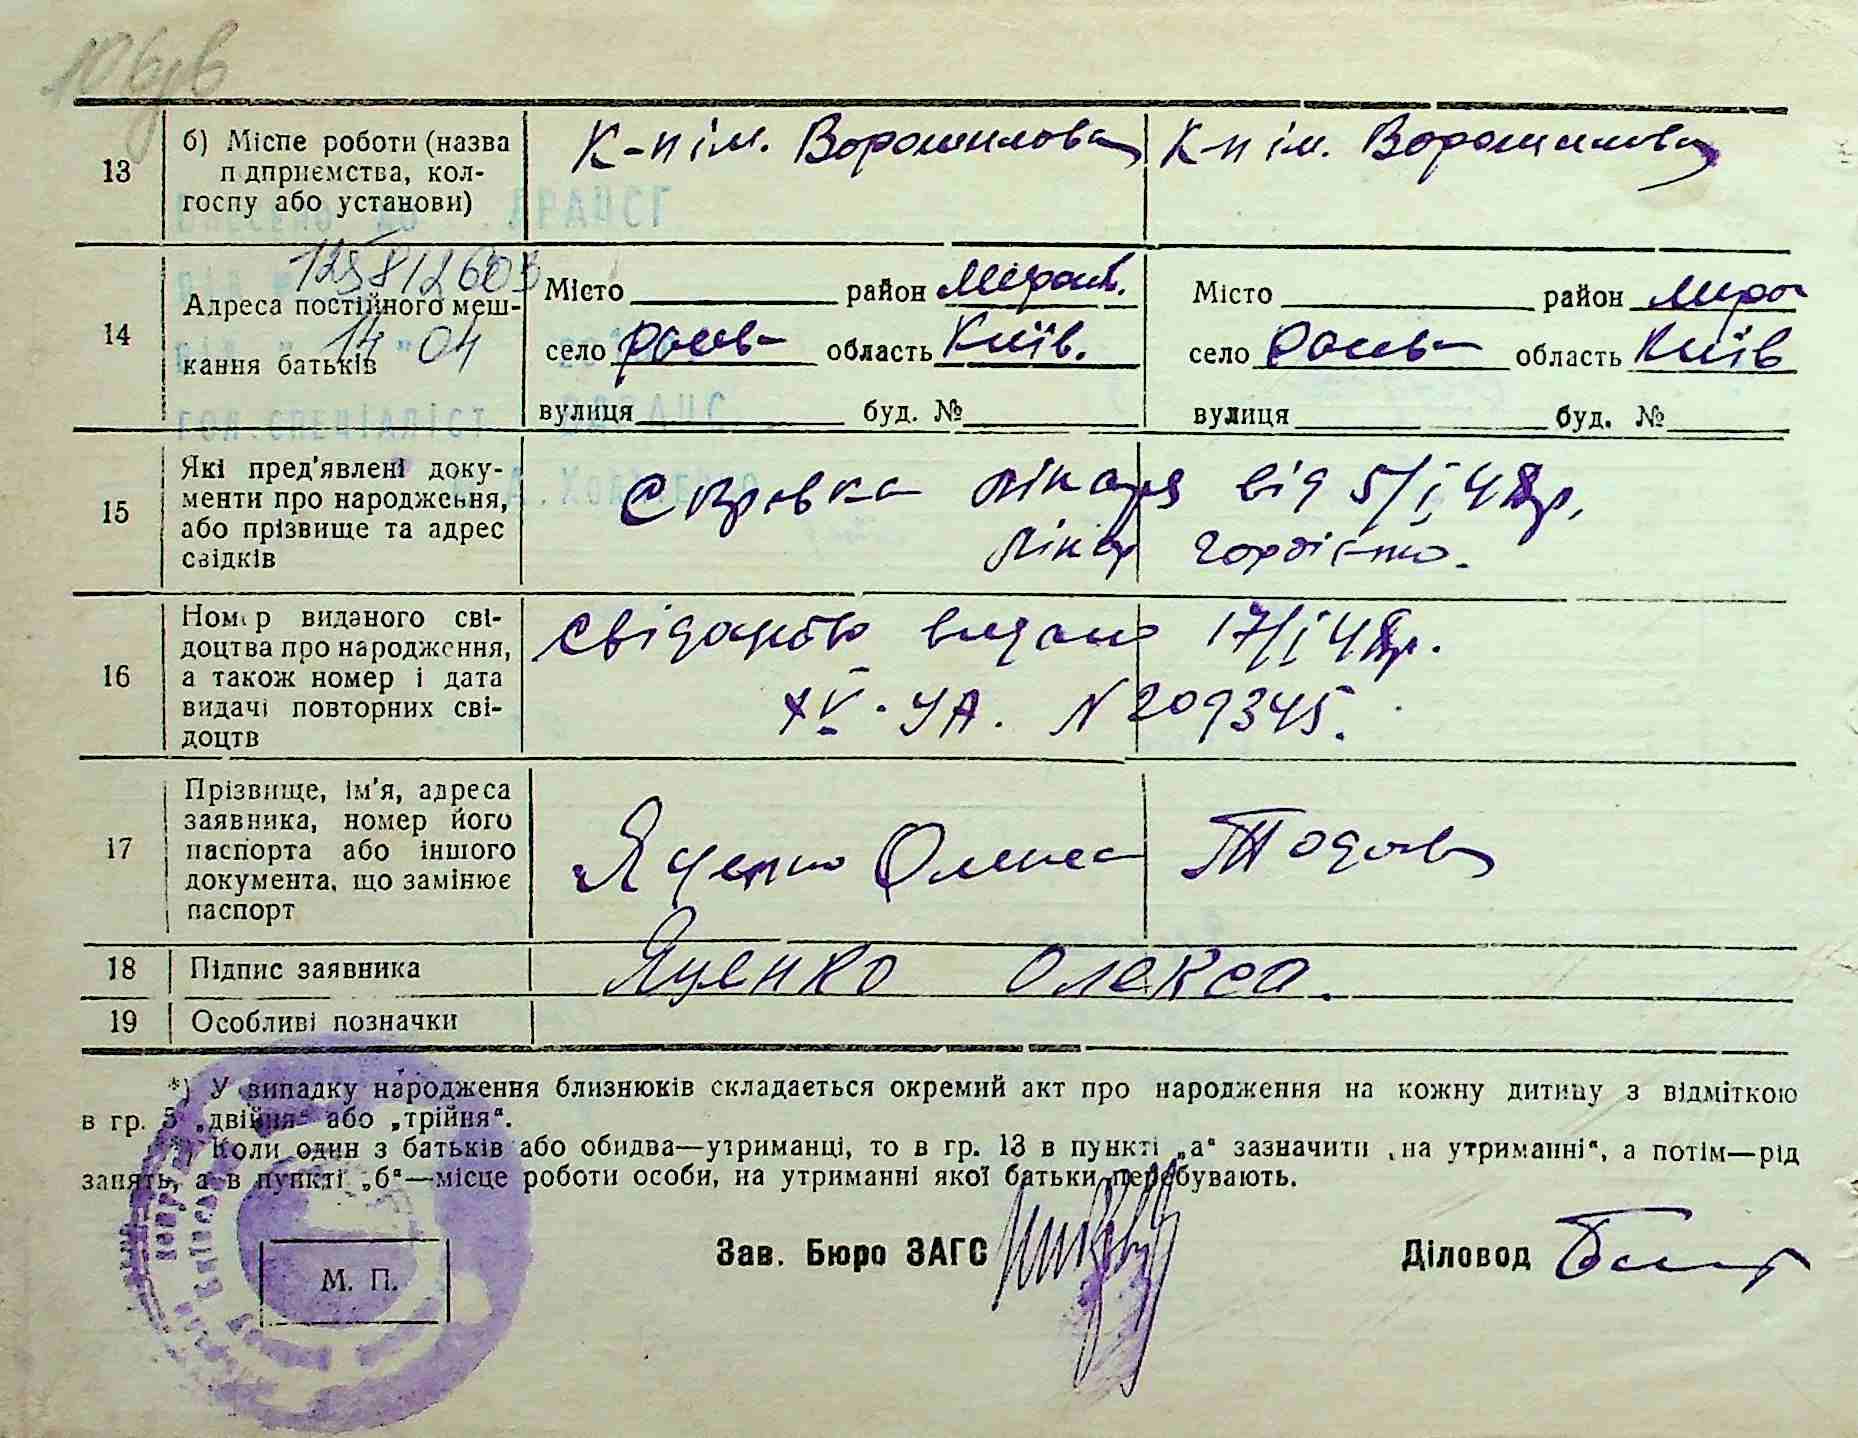 13 б) Місце роботи (назва К-п ім. Ворошилова К-п ім. Ворошилова
підприємства, кол-
госпу або установи)
125812603
Місто район Мирон. Місто район Миро
14 Адреса постійного меш-
14 04
кання батьків
село Росава область Київ. село Росава область Київ
вулиця буд. № вулиця буд. №
гол. спеціаліст
15 Які пред'явлені доку-
менти про народження,
або прізвище та адрес
свідків
Справка лікаря від 5/I 48р.
лікар
16 Номер виданого сві-
доцтва про народження,
а також номер і дата
видачі повторних сві-
доцтв
Свідоцтво видано 17/I 48р.
XV-УА. N 209345.
17 Прізвище, ім'я, адреса
заявника, номер його
паспорта або іншого
документа, що замінює
паспорт
Яценко Олекса Тодов
18 Підпис заявника Яценко Олекса.
19 Особливі позначки
*) У випадку народження близнюків складається окремий акт про народження на кожну дитину з відміткою
в гр. 5 „двійня“ або „трійня“.
**) Коли один з батьків або обидва—утриманці, то в гр. 13 в пункті „а“ зазначити „на утриманні“, а потім—рід
занять, а в пункті „б“—місце роботи особи, на утриманні якої батьки перебувають.
Зав. Бюро ЗАГС Діловод
М. П.